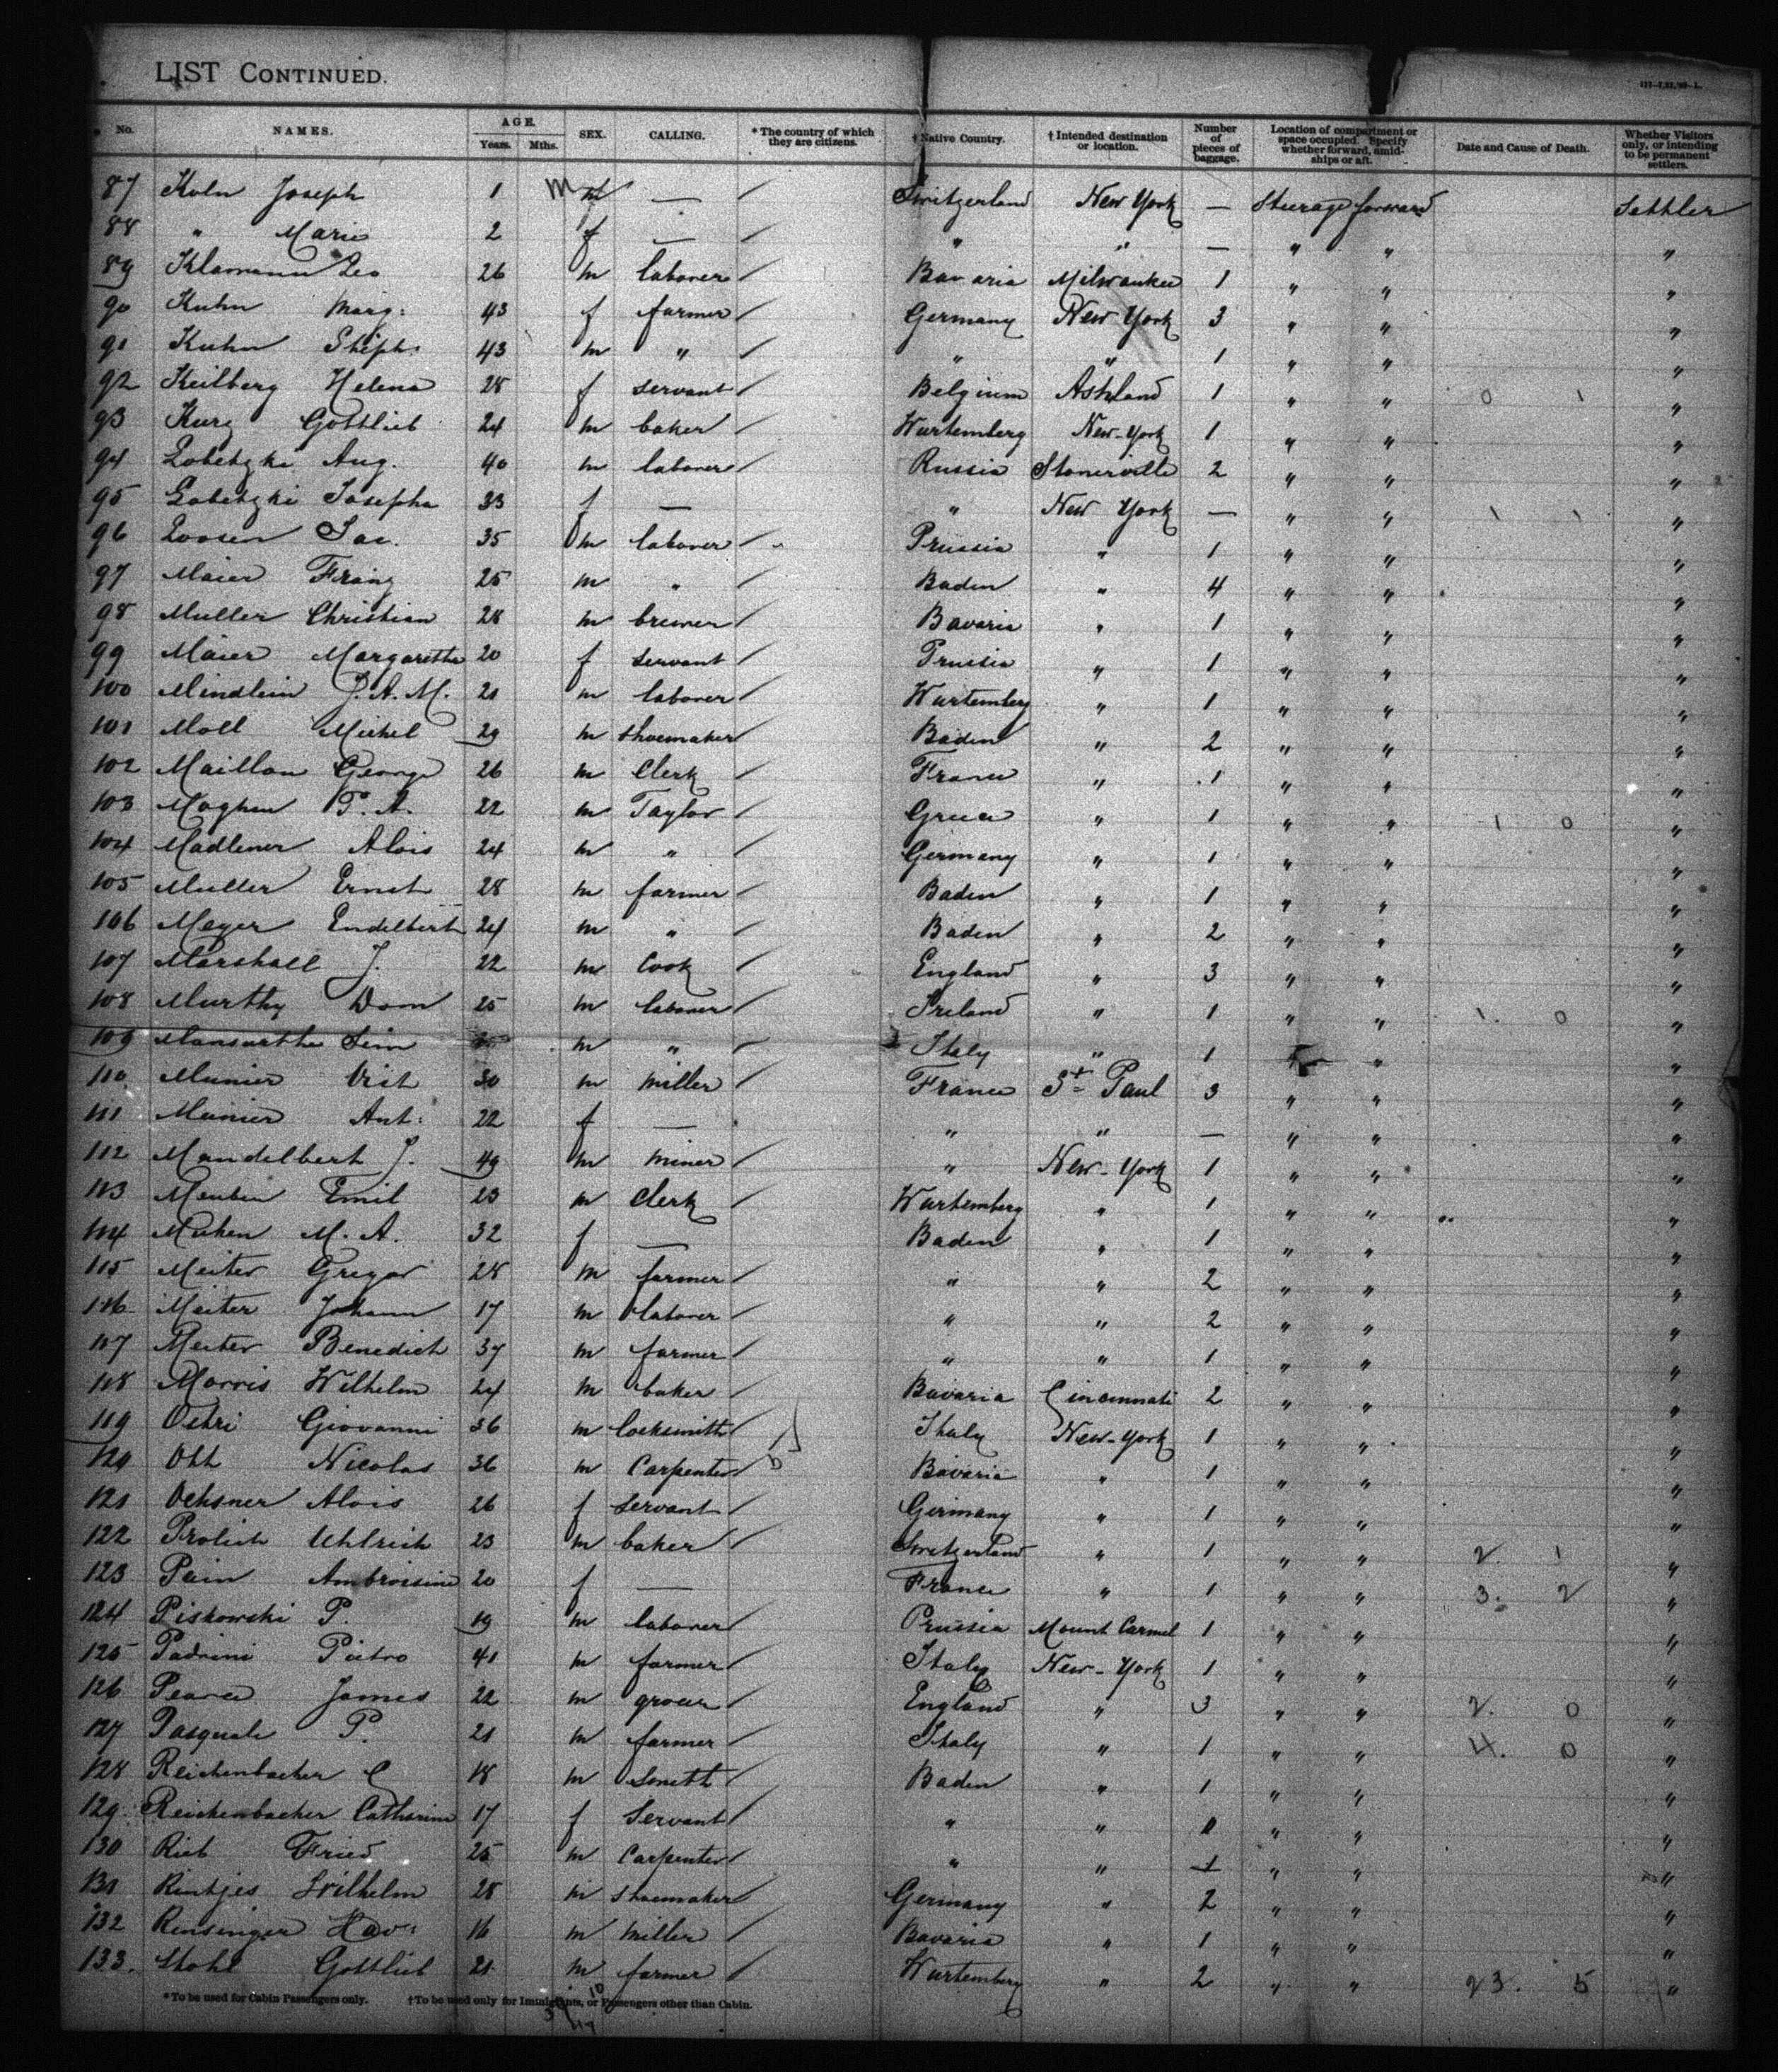 LIST CONTINUED.
No. NAMES. AGE. Years. Mths. SEX. CALLING. * The country of which they are citizens. † Native Country. † Intended destination or location. Number of pieces of baggage. Location of compartment or space occupied. Specify whether forward, amidships or aft. Date and Cause of Death. Whether Visitors only, or intending to be permanent settlers.
87 Koln Joseph 1 m — / Switzerland New York — Steerage forward Settler
88 " Marie 2 f — / " " — " " "
89 Klamann Leo 26 m laborer / Bavaria Milwaukee 1 " " "
90 Kuhn Marg: 43 f farmer / Germany New York 3 " " "
91 Kuhn Steph: 43 m " / " " 1 " " "
92 Keilberg Helena 28 f servant / Belgium Ashland 1 " " 0 1 "
93 Kurz Gottlieb 24 m baker / Wurtemberg New-York 1 " " "
94 Lobetzki Aug. 40 m laborer / Russia Stonerville 2 " " "
95 Lobetzki Josepha 33 f — " New York — " " 1 1 "
96 Loosen Jac. 35 m laborer / Prussia " 1 " " "
97 Maier Franz 25 m " / Baden " 4 " " "
98 Muller Christian 28 m brewer / Bavaria " 1 " " "
99 Maier Margaretha 20 f servant / Prussia " 1 " " "
100 Mindlein J. A. M. 21 m laborer / Wurtemberg " 1 " " "
101 Moll Michel 29 m shoemaker / Baden " 2 " " "
102 Maillon George 26 m Clerk / France " 1 " " "
103 P. A. 22 m Taylor / Greece " 1 " " 1 0 "
104 Madlener Alois 24 m " / Germany " 1 " " "
105 Muller Ernst 28 m farmer / Baden " 1 " " "
106 Meyer Endelbert 24 m " / Baden " 2 " " "
107 Marshall J. 22 m Cook / England " 3 " " "
108 Murthy Dom 25 m laborer / Ireland " 1 " " 1. 0 "
109 m " / Italy " 1 " "
110 Munier 30 m miller / France St Paul 3 " " "
111 Munier Ant: 22 f — " " — " " "
112 Mandelbert J. 49 m miner / " New-York 1 " " "
113 Meuben Emil 23 m Clerk / Wurtemberg " 1 " " "
114 M. A. 32 f — Baden " 1 " " "
115 Meiter Gregor 28 m farmer / " " 2 " " "
116 Meiter Johann 17 m laborer / " " 2 " " "
117 Meiter Benedict 37 m farmer / " " 1 " " "
118 Morris Wilhelm 24 m baker / Bavaria Cincinnati 2 " " "
119 Oehri Giovanni 36 m locksmith / Italy New-York 1 " " "
120 Ott Nicolas 36 m Carpenter / Bavaria " 1 " " "
121 Ochsner Alois 26 f servant / Germany " 1 " " "
122 Uhlrich 23 m baker / Switzerland " 1 " " 2. 1 "
123 Pain Ambroisine 20 f — France " 1 " " 3. 2 "
124 Piskowski P. 19 m laborer / Prussia Mount Carmel 1 " " "
125 Padrini Pietro 41 m farmer / Italy New-York 1 " " "
126 Pearce James 22 m grocer / England " 3 " " 2. 0 "
127 Pasquale P. 21 m farmer / Italy " 1 " " 4. 0 "
128 Reichenbacher C 18 m Smith / Baden " 1 " " "
129 Reichenbacher Catharina 17 f Servant / " " " " "
130 Rieb Fried 25 m Carpenter / " " 1 " " "
131 Rintjes Wilhelm 28 m shoemaker / Germany " 2 " " "
132 Rensinger Xav: 16 m miller / Bavaria " 1 " " "
133. Stohl Gottlieb 21 m farmer / Wurtemberg " 2 " " 23. 5 "
* To be used for Cabin Passengers only. † To be used only for Immigrants, or Passengers other than Cabin.